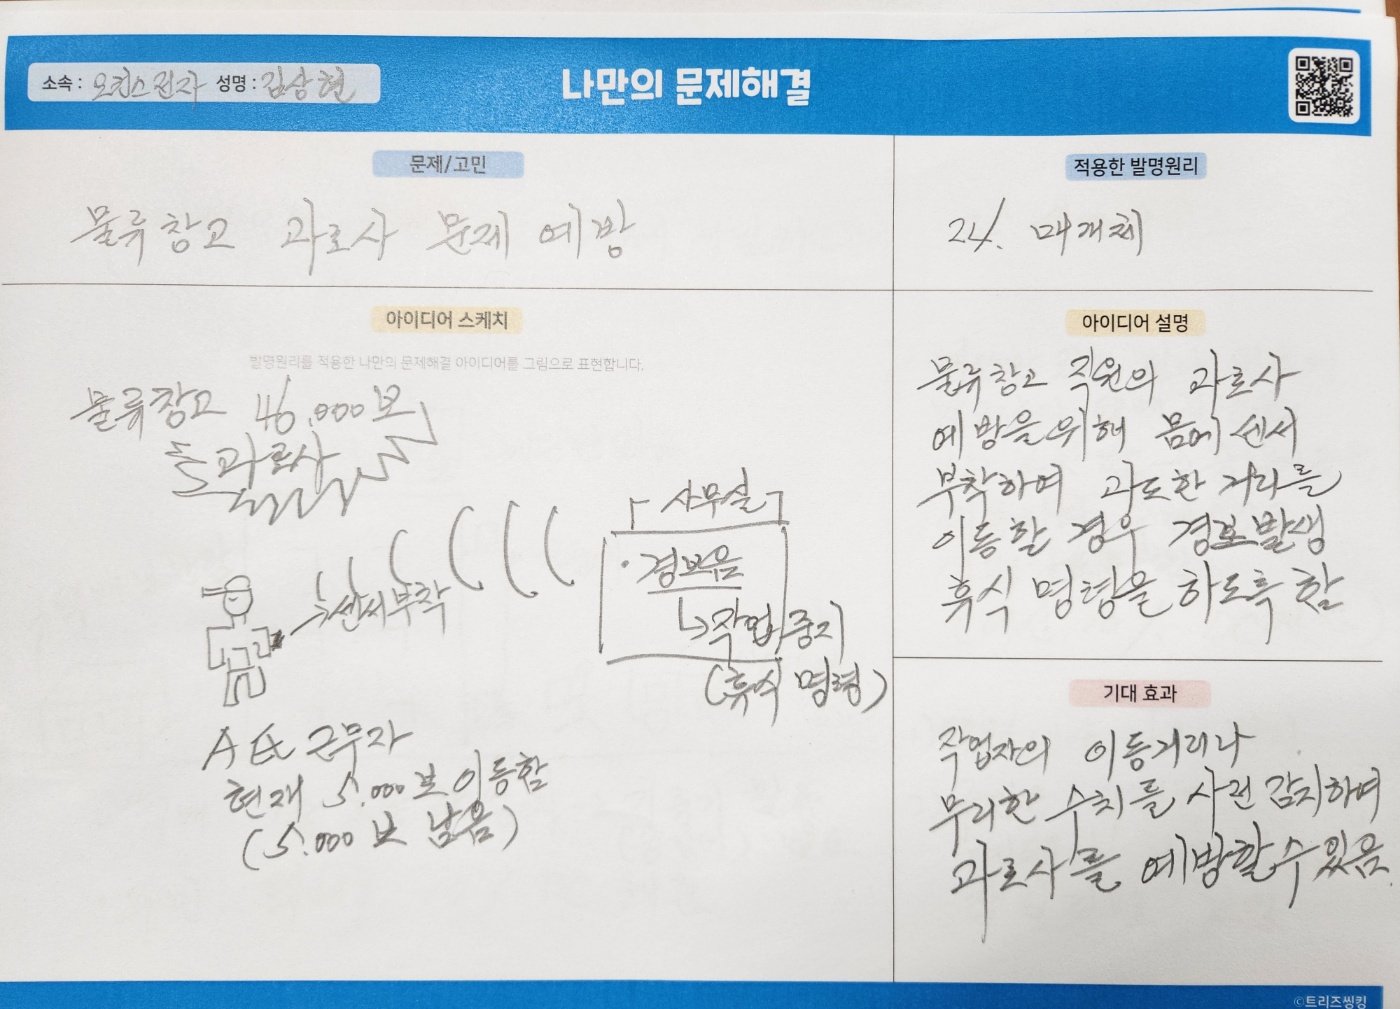 소속 : 오킨스전자 성명 : 김상현
나만의 문제해결
문제/고민
물류창고 과로사 문제 예방
적용한 발명원리
24. 매개체
아이디어 스케치
발명원리를 적용한 나만의 문제해결 아이디어를 그림으로 표현합니다.
물류창고 46,000보
과로사
「사무실」
· 경보음
↳ 작업 중지
(휴식 명령)
→ 센서부착
근무자
현재 5,000보 이동함
(5,000보 남음)
아이디어 설명
물류창고 직원의 과로사
예방을 위해 몸에 센서
부착하여 과도한 거리를
이동할 경우 경보발생
휴식 명령을 하도록 함
기대 효과
작업자의 이동거리나
무리한 수치를 사전 감지하여
과로사를 예방할 수 있음.
©트리즈씽킹